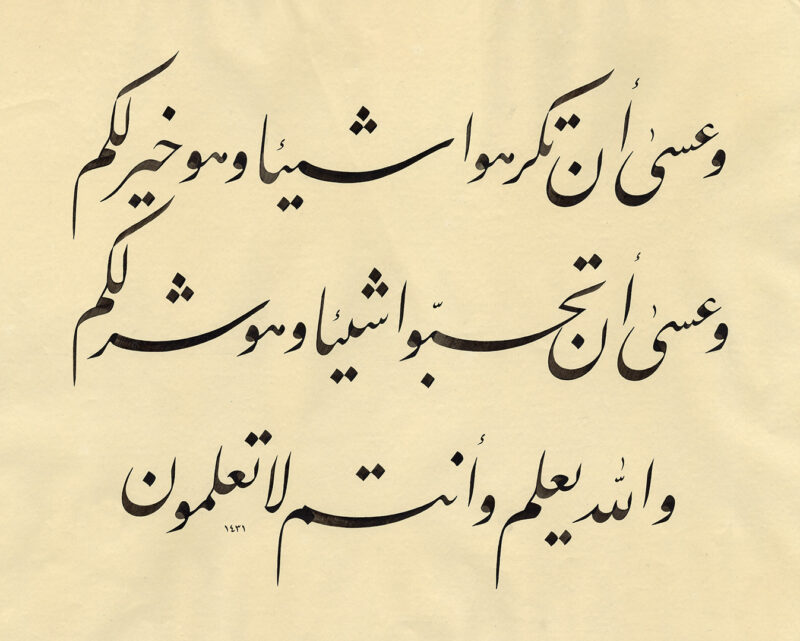 وعسىٰ أن تكرهوا شيئا وهو خير لكم
وعسىٰ أن تحبّوا شيئا وهو شر لكم
والله يعلم وأنتم لا تعلمون
١٤٣١